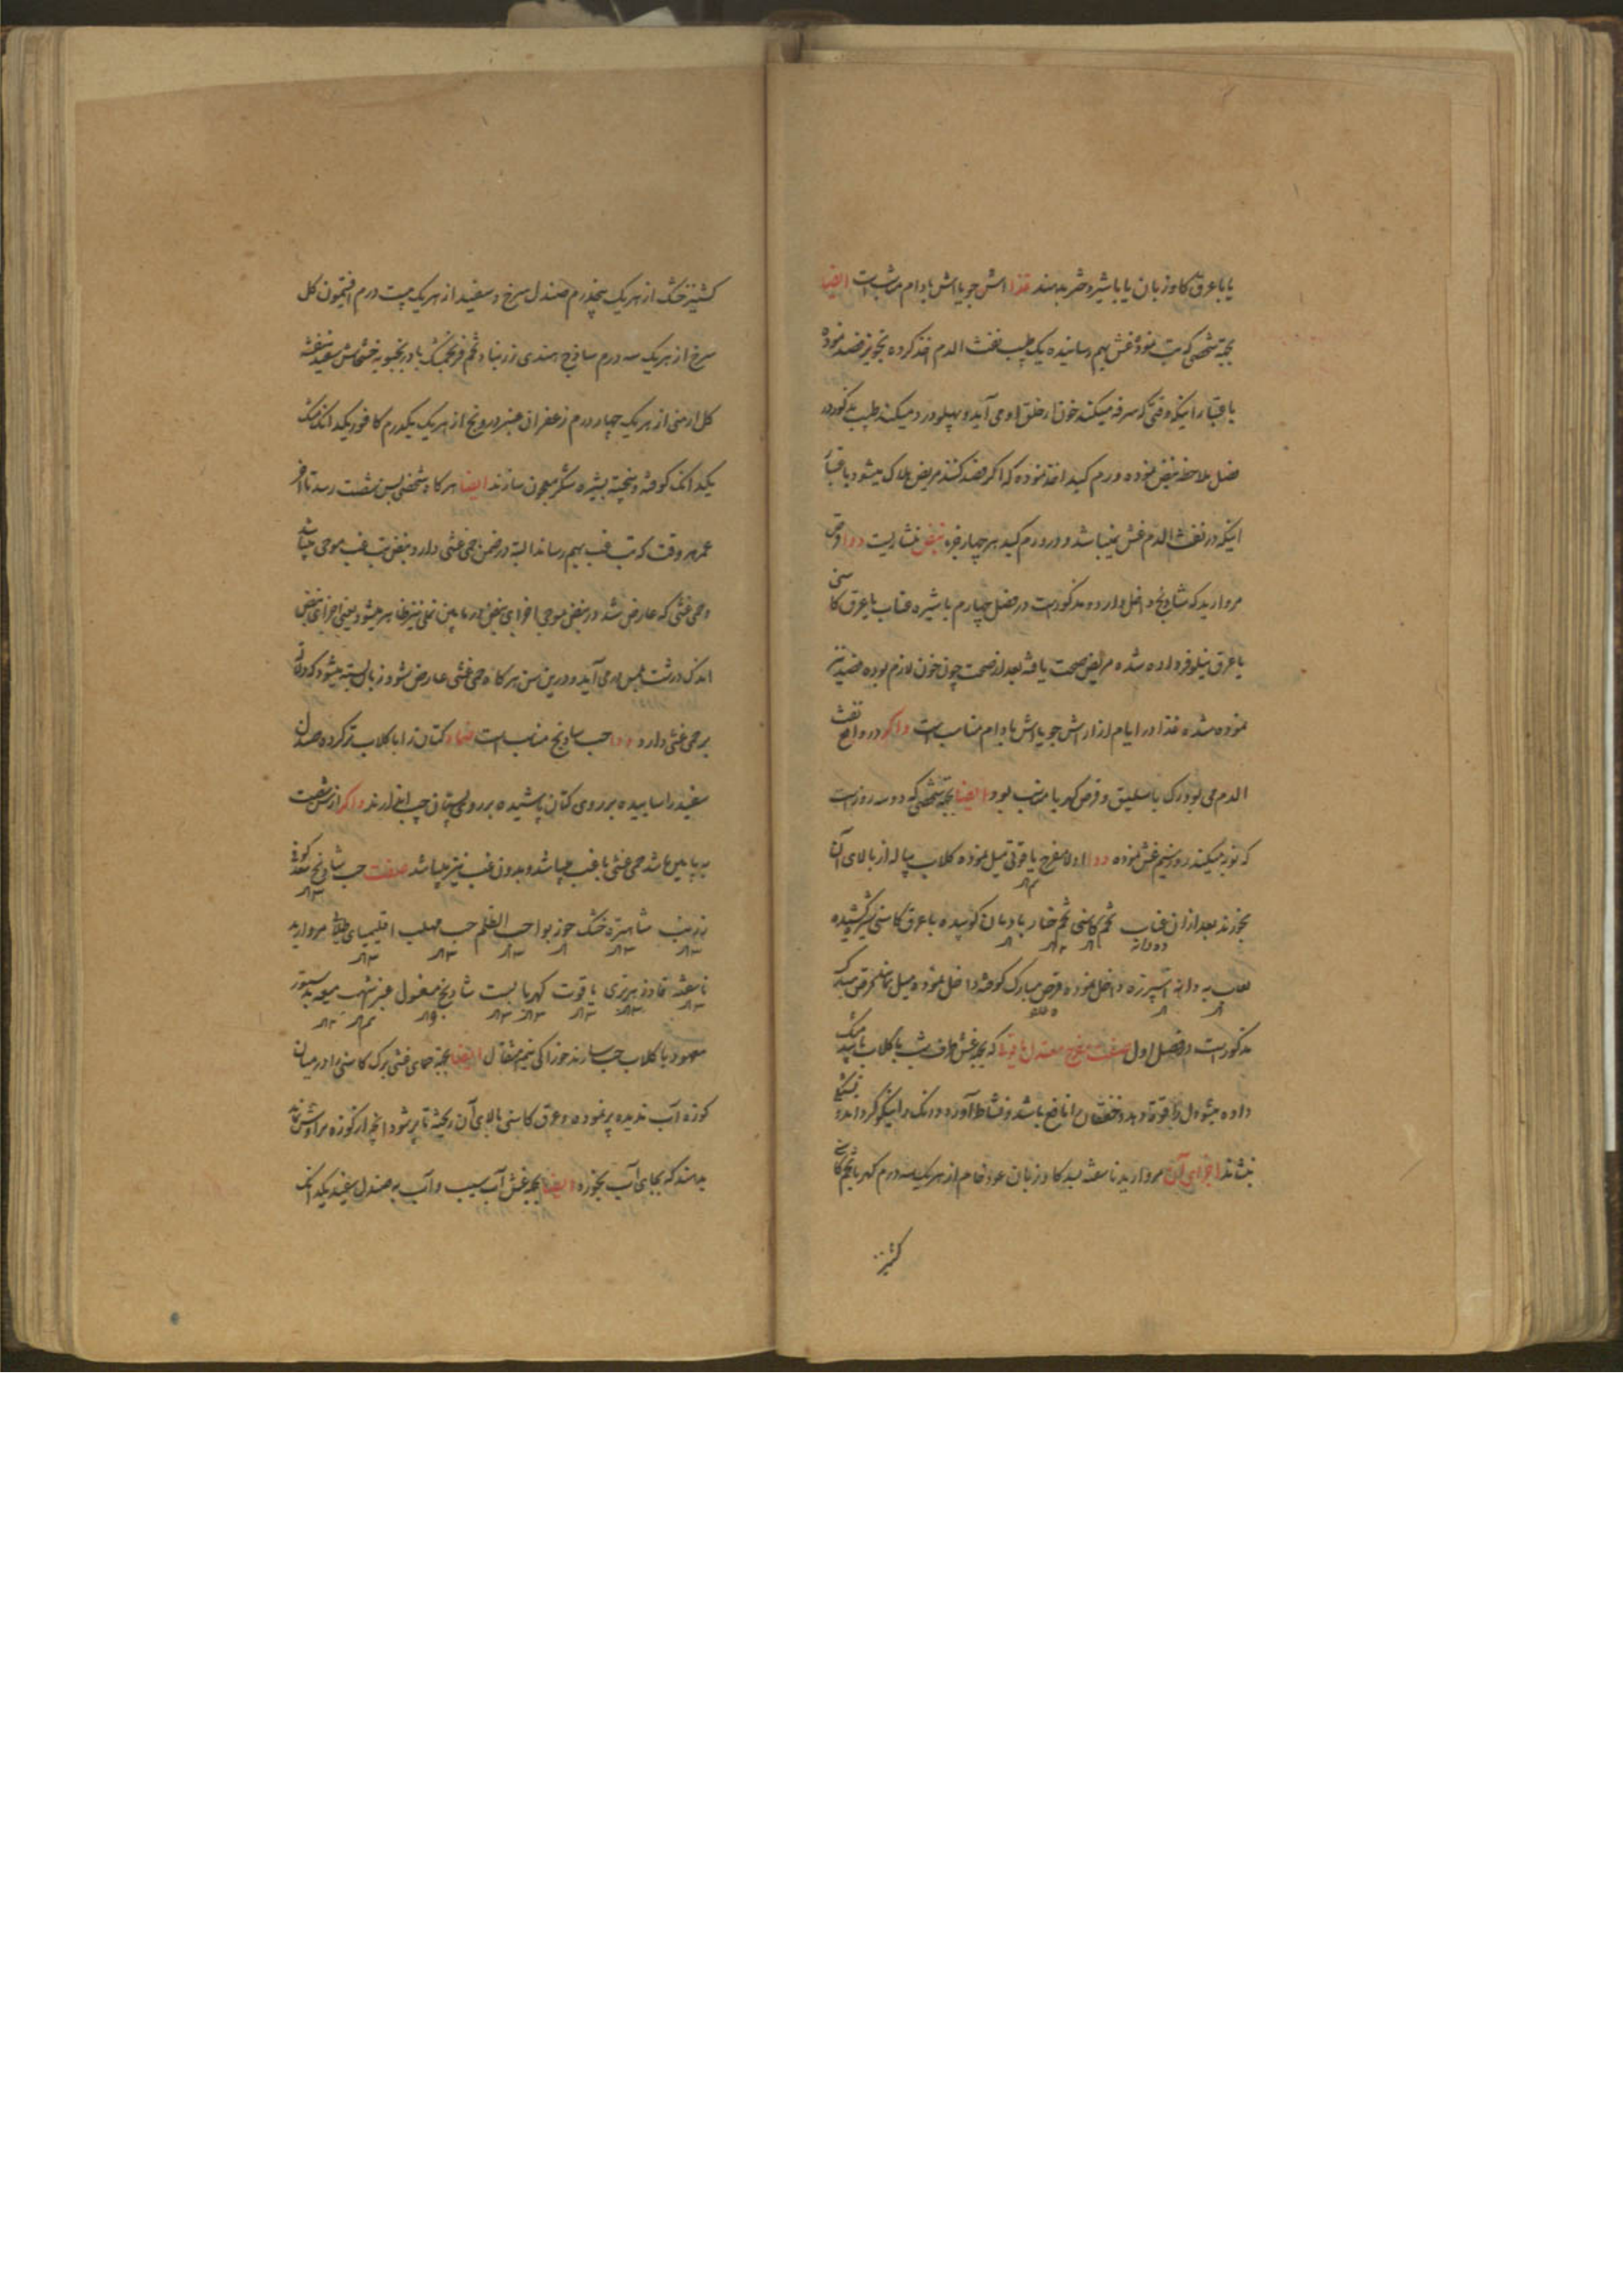 یا با عرق کاوزبان یا با شیر دختر بدهند غذا اش جو یا اش بادام مناسب است ایضا
بجهة شخصی که تب نموده غش بهم رسانیده یک طبیب نفث الدم اخذ کرده تجویز فصد نموده
باعتبار اینکه وقتی که سرفه میکند خون از حلق او می آید و پهلو درد میکند طبیب مذکور در
فصل ملاحظه نبض نموده ورم کبد اخذ نموده که اگر فصد کنند مریض هلاک میشود باعتبار
اینکه در نفث الدم غش نمیباشد و در ورم کبد هر چهار جزء نبض منشاریست دوا قرص
مروارید که شادنج داخل دارد و مذکور است در فصل چهارم با شیره عناب با عرق کاسنی
یا عرق نیلوفر داده شده مریض صحت یافته بعد از صحت چون خون لازم بوده فصد نیز
نموده شده غذا در ایام ازار اش جو یا اش بادام مناسب است و اگر در واقع نفث
الدم می بود رک باسلیق و قرص کهربا مناسب بود ایضا بجهة شخصی که دو سه روز است
که نوبه میکند روز سیم غش نموده دوا اولا مفرح یاقوتی میل نموده کلاب پیاله از بالای آن
بخورند بعد از ان عناب تخم کاسنی تخم خیار بادیان کوبیده با عرق کاسنی شیره کشیده
لعاب به دانه اسپرزه داخل نموده قرص مبارک کوفته داخل نموده میل نمایند قرص مبارک
مذکور است در فصل اول صفت مفرح معتدل یاقوتی که بجهة غش طرف شب با کلاب یا بید مشک
داده میشود دل را قوت دهد و خفقان را نافع باشد و نشاط آورد و رنک را نیکو گرداند و تشنگی
بنشاند اجزای آن مروارید ناسفته بسد کاوزبان عود خام از هر یک سه درم کهربا تخم کاسنی
کشنیز
کشنیز خشک از هر یک پنجدرم صندل سرخ و سفید از هر یک بیست درم افتیمون کل
سرخ از هر یک سه درم ساذج هندی زرنباد تخم فرنجمشک بادرنجبویه خشخاش سفید بنفشه
کل ارمنی از هر یک چهار درم زعفران عنبر درونج از هر یک یکدرم کافور یکدانک مشک
یکدانک کوفته و پخته بشیره شکر معجون سازند ایضا هر کاه شخصی بسن شصت رسد تا اخر
عمر هر وقت که تب غب بهم رساند البته در ضمن حمی غشی دارد و نبض تب غب موجی میباشد
و حمی غشی که عارض شد در نبض موجی اجزای نبض در مابین نملی نیز ظاهر میشود یعنی اجزای نبض
اندک درشت بلمس در می آید و در این سن هر کاه حمی غشی عارض شود زبان بسته میشود که دلالت
بر حمی غشی دارد دوا حب شادنج مناسب است ضماد کتان را با کلاب تر کرده صندل
سفید را ساییده بر روی کتان پاشیده بر روی پستان چپ اندازند و اگر از سن شصت
به پایین باشد حمی غشی با غب میباشد و بدون غب نیز میباشد صفت حب شادنج کوفی
زرنب شاهتره خشک جوزبوا حب القلم حب مهلب اقلیمیای طلا مروارید
ناسفته قاوزهری یاقوت کهربا بسد شادنج مغسول عنبر اشهب
معهود با کلاب حب سازند خوراکی نیم مثقال ایضا بجهة حمای غشی برک کاسنی را در میان
کوزه آب ندیده پر نموده و عرق کاسنی بالای آن ریخته تا پر شود انچه از کوزه تراوش نماید
بدهند که بجای آب بخورد ایضا بجهة غش آب سیب و آب به صندل سفید یکدانک